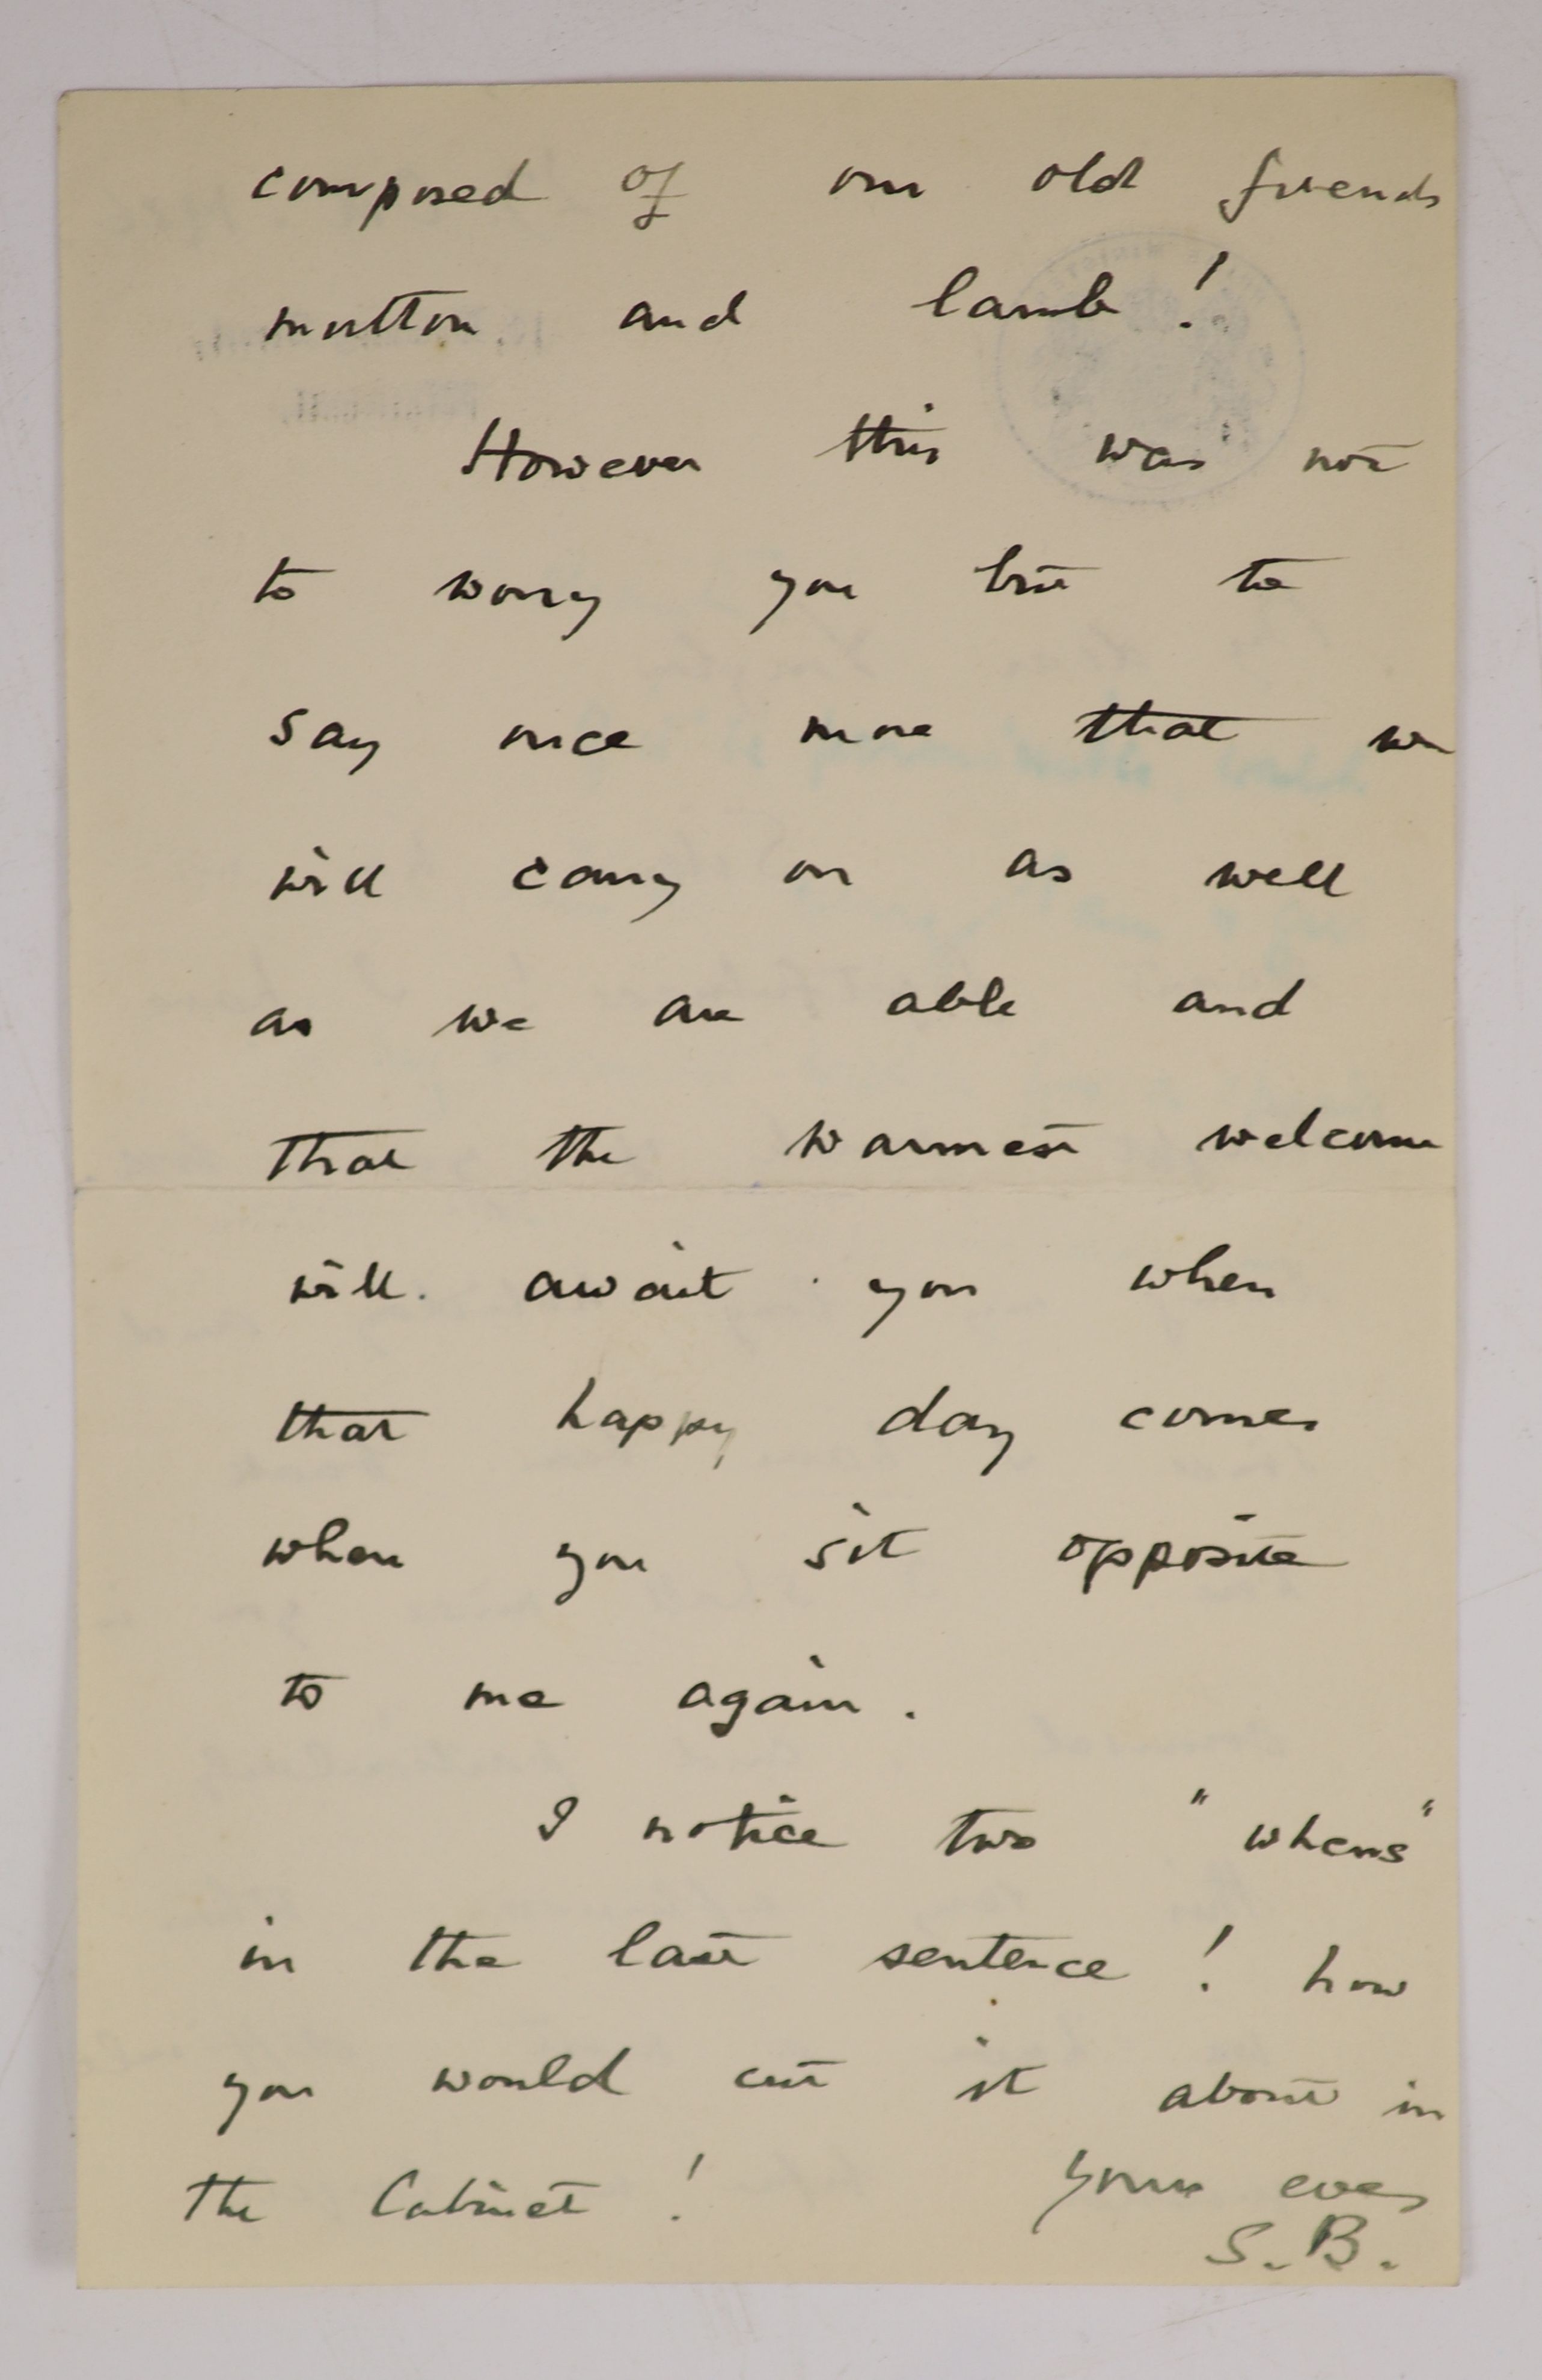 composed of our old friends
mutton and lamb!
However this was not
to worry you but to
say once more that we
will carry on as well
as we are able and
that the warmest welcome
will await you when
that happy day comes
when you sit opposite
to me again.
I notice two "whens"
in the last sentence! how
you would cut it about in
the Cabinet!
Yours ever
S.B.